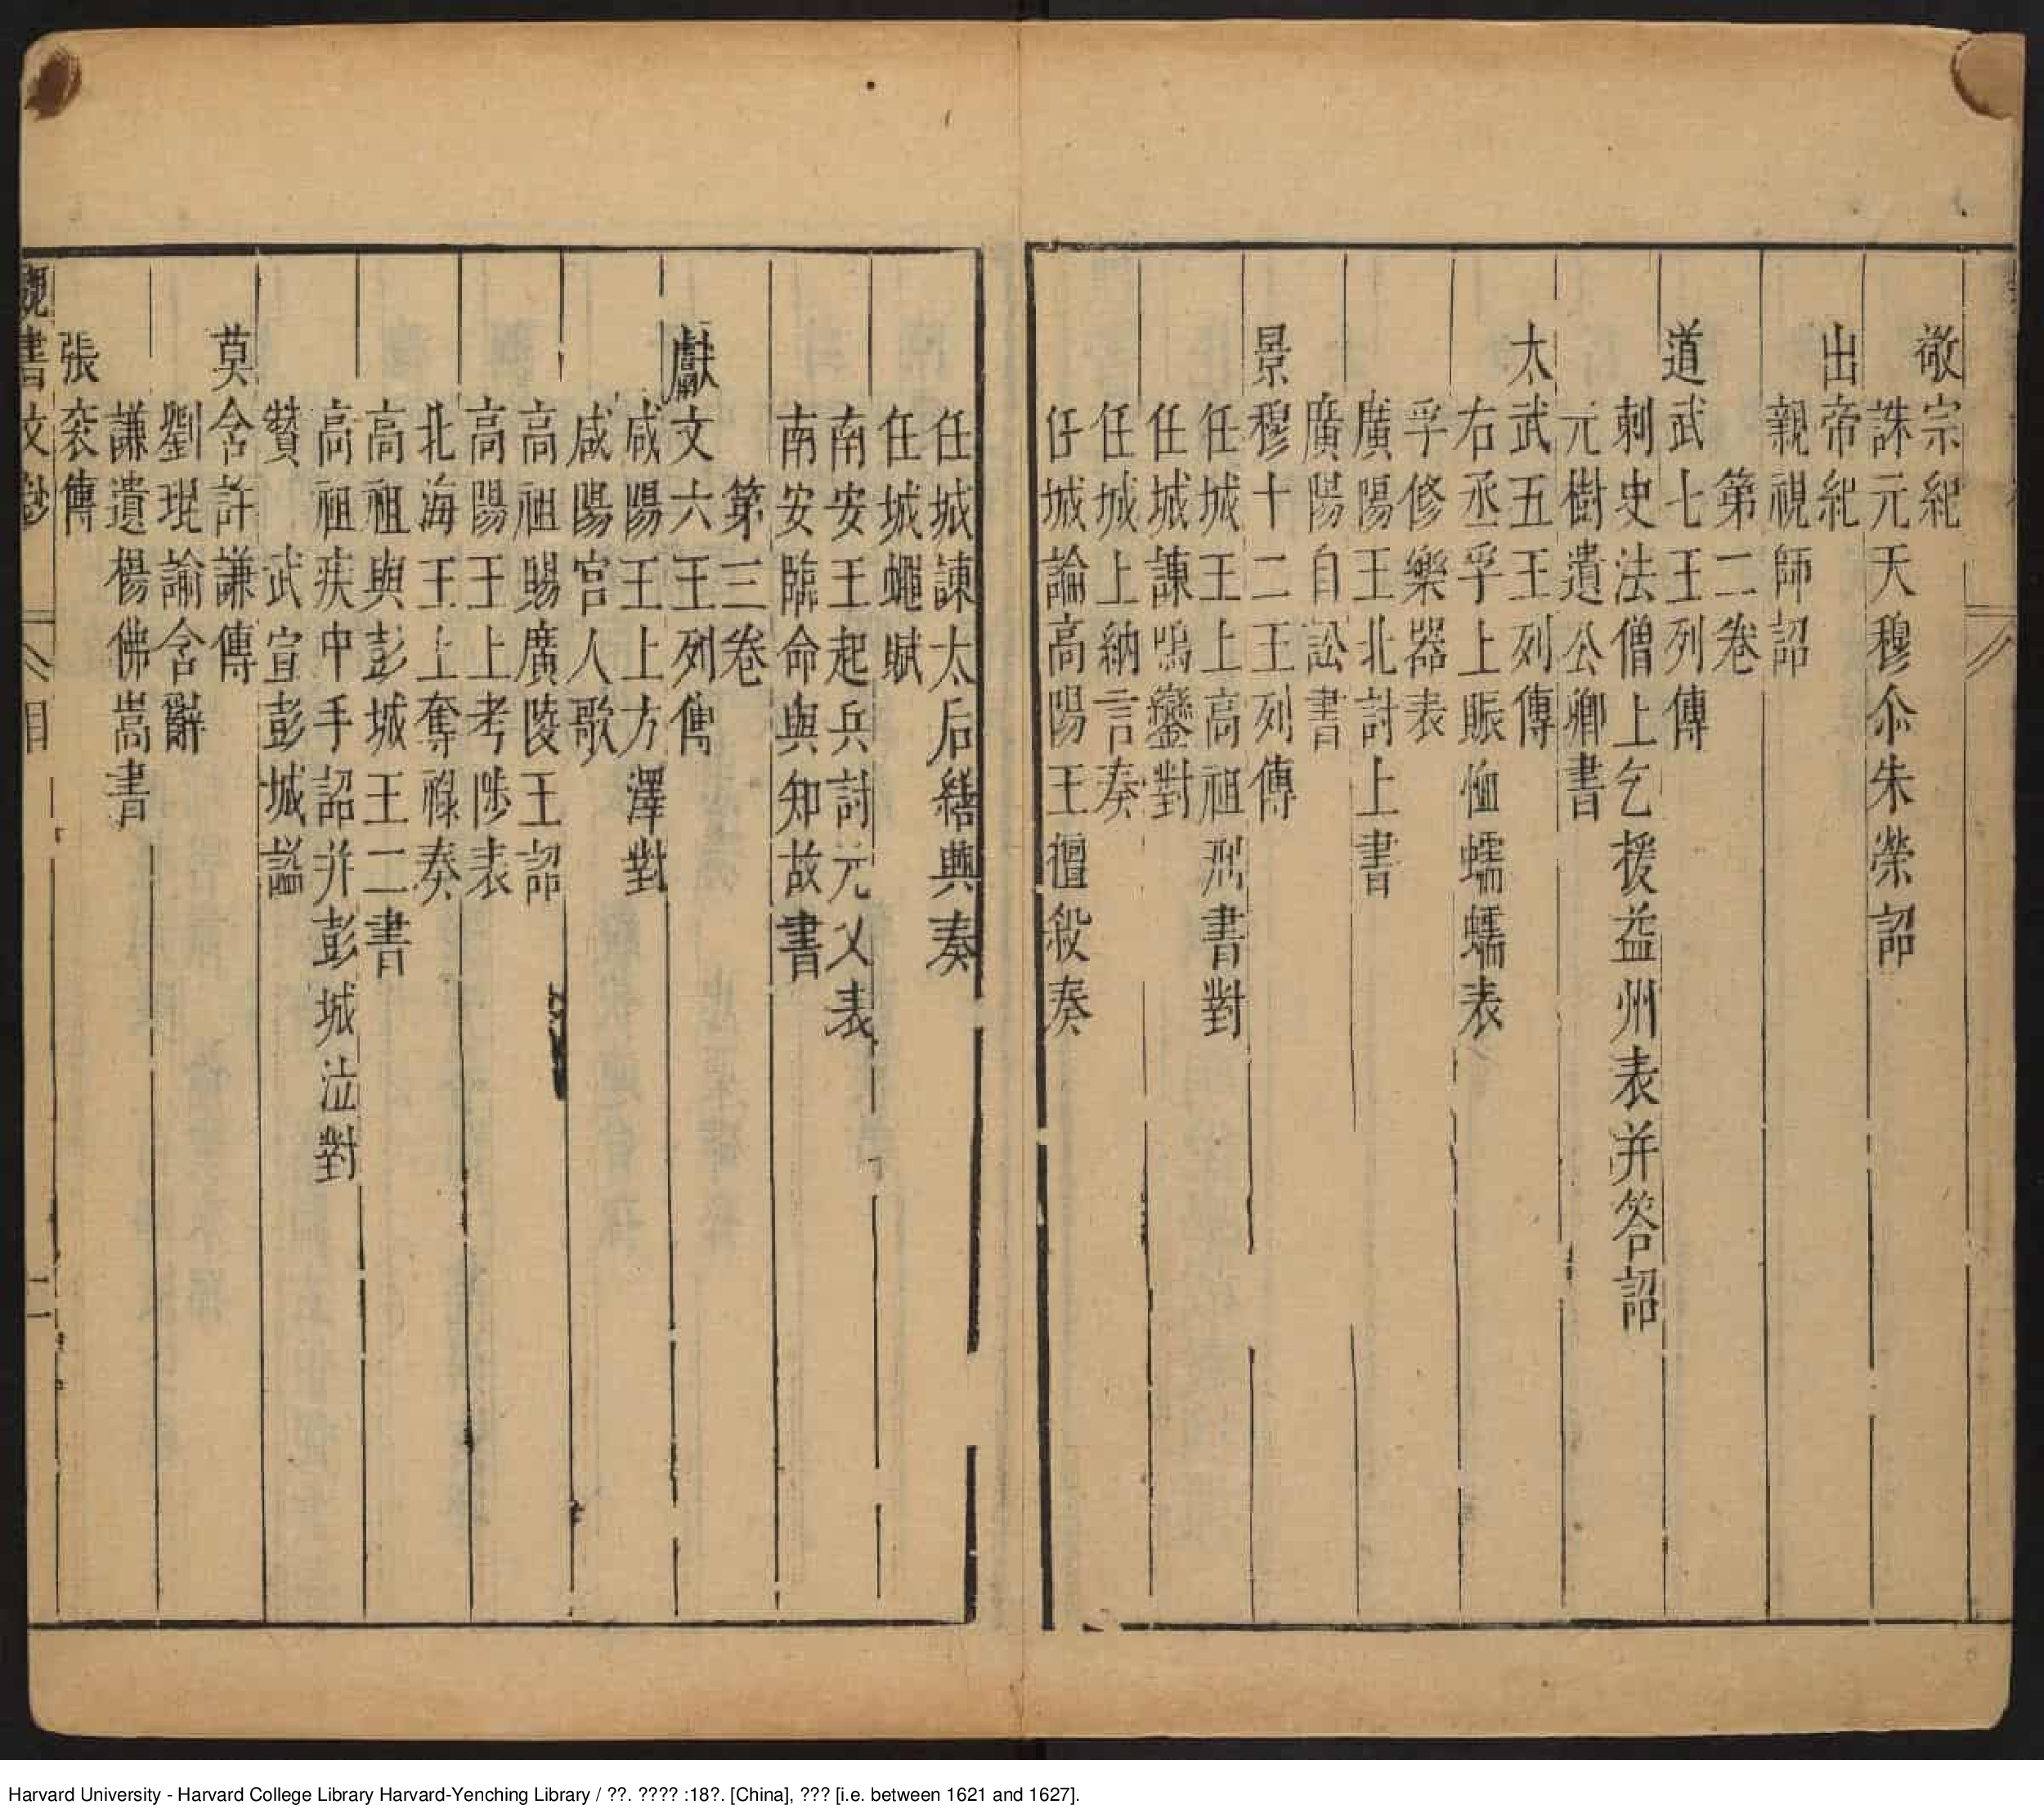 敬宗紀
誅元天穆尒朱榮詔
出帝紀
親視師詔
第二卷
道武七王列傳
刺史法僧上乞援益州表并答詔
元樹遺公卿書
太武五王列傳
右丞孚上賑恤蠕蠕表
孚修樂器表
廣陽王北討上書
廣陽自訟書
景穆十二王列傳
任城王上高祖刑書對
任城諫鳴鑾對
任城上納言奏
任城論高陽王擅殺奏
任城諫太后繕興奏
任城蠅賦
南安王起兵討元乂表
南安臨命與知故書
第三卷
獻文六王列傳
咸陽王上方澤對
咸陽宮人歌
高祖賜廣陵王詔
高陽王上考陟表
北海王上奪祿奏
高祖與彭城王二書
高祖疾中手詔并彭城泣對
贊 武宣彭城謚
莫含許謙傳
劉琨諭含辭
謙遺楊佛嵩書
張袞傳
魏書文鈔 目 二
Harvard University - Harvard College Library Harvard-Yenching Library / ??. ???? :18?. [China], ??? [i.e. between 1621 and 1627].